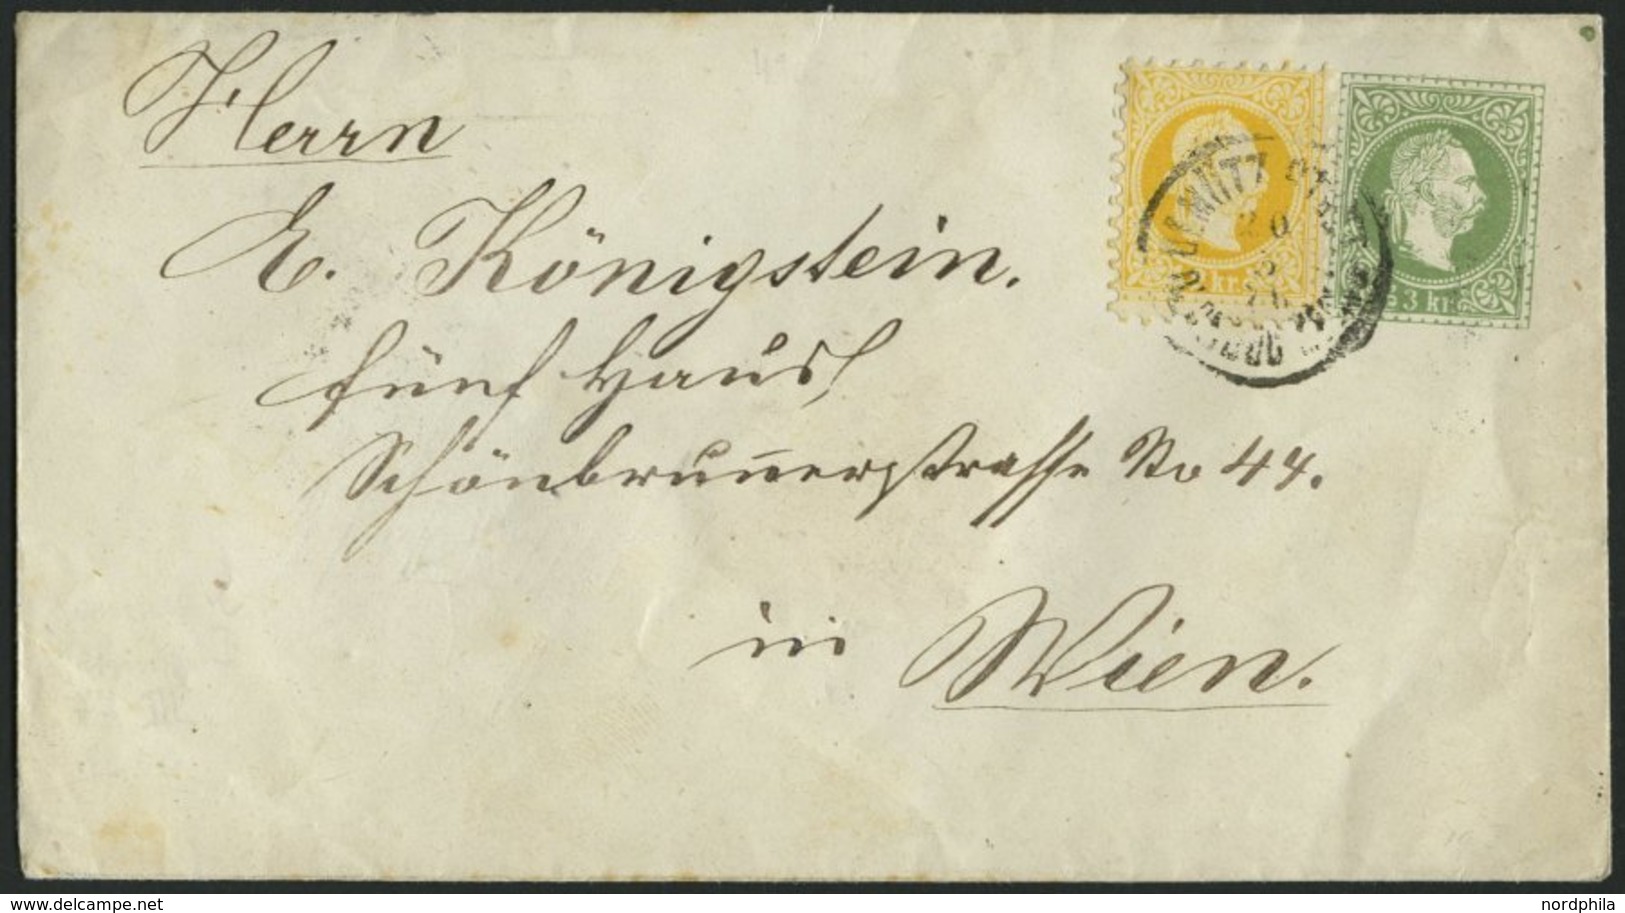 Herrn
E. Königstein.
fünfhaus,
Schönbrunnerstrasse No 44.
in Wien.
OLMÜTZ STADT
20
kr.
3 kr.
www.delcampe.net
nordphila